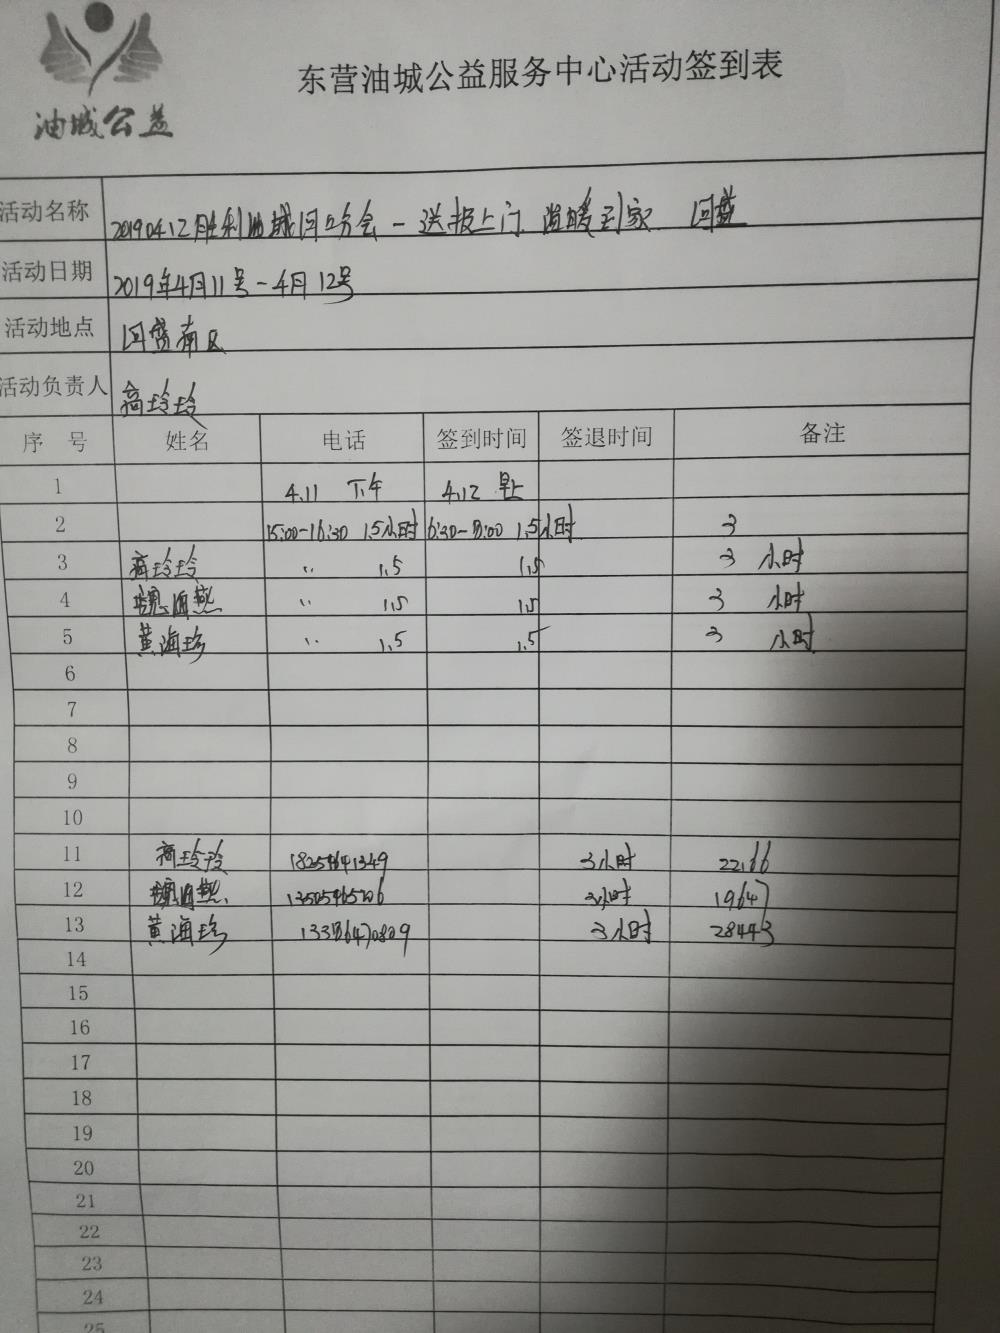 油城公益
东营油城公益服务中心活动签到表
活动名称 20190412胜利油城 分会-送报上门 温暖到家
活动日期 2019年4月11号-4月12号
活动地点 南区
活动负责人 高玲玲
序 号 姓名 电话 签到时间 签退时间 备注
1 4.11 下午 4.12 早上
2 15:00-16:30 1.5小时 6:30-8:00 1.5小时 3
3 高玲玲 〃 1.5 1.5 3 小时
4 〃 1.5 1.5 3 小时
5 黄海珍 〃 1.5 1.5 3 小时
6
7
8
9
10
11 高玲玲 3小时
12 3小时 19647
13 黄海珍 3小时 28443
14
15
16
17
18
19
20
21
22
23
24
25